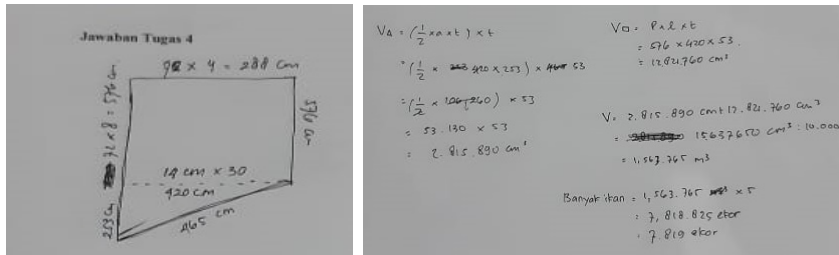 Jawaban Tugas 4
72 x 4 = 288 cm
72 x 8 = 576 cm
576 cm
14 cm x 30
420 cm
253 cm
465 cm
V∆ = (1/2 x a x t) x t
= (1/2 x 420 x 253) x 53
= (1/2 x 106260) x 53
= 53.130 x 53
= 2.815.890 cm³
V□ = P x l x t
= 576 x 420 x 53
= 12.821.760 cm³
V = 2.815.890 cm + 12.821.760 cm³
= 15.637.650 cm³ : 10.000
= 1,563.765 m³
Banyak ikan = 1,563.765 x 5
= 7,818.825 ekor
= 7.819 ekor